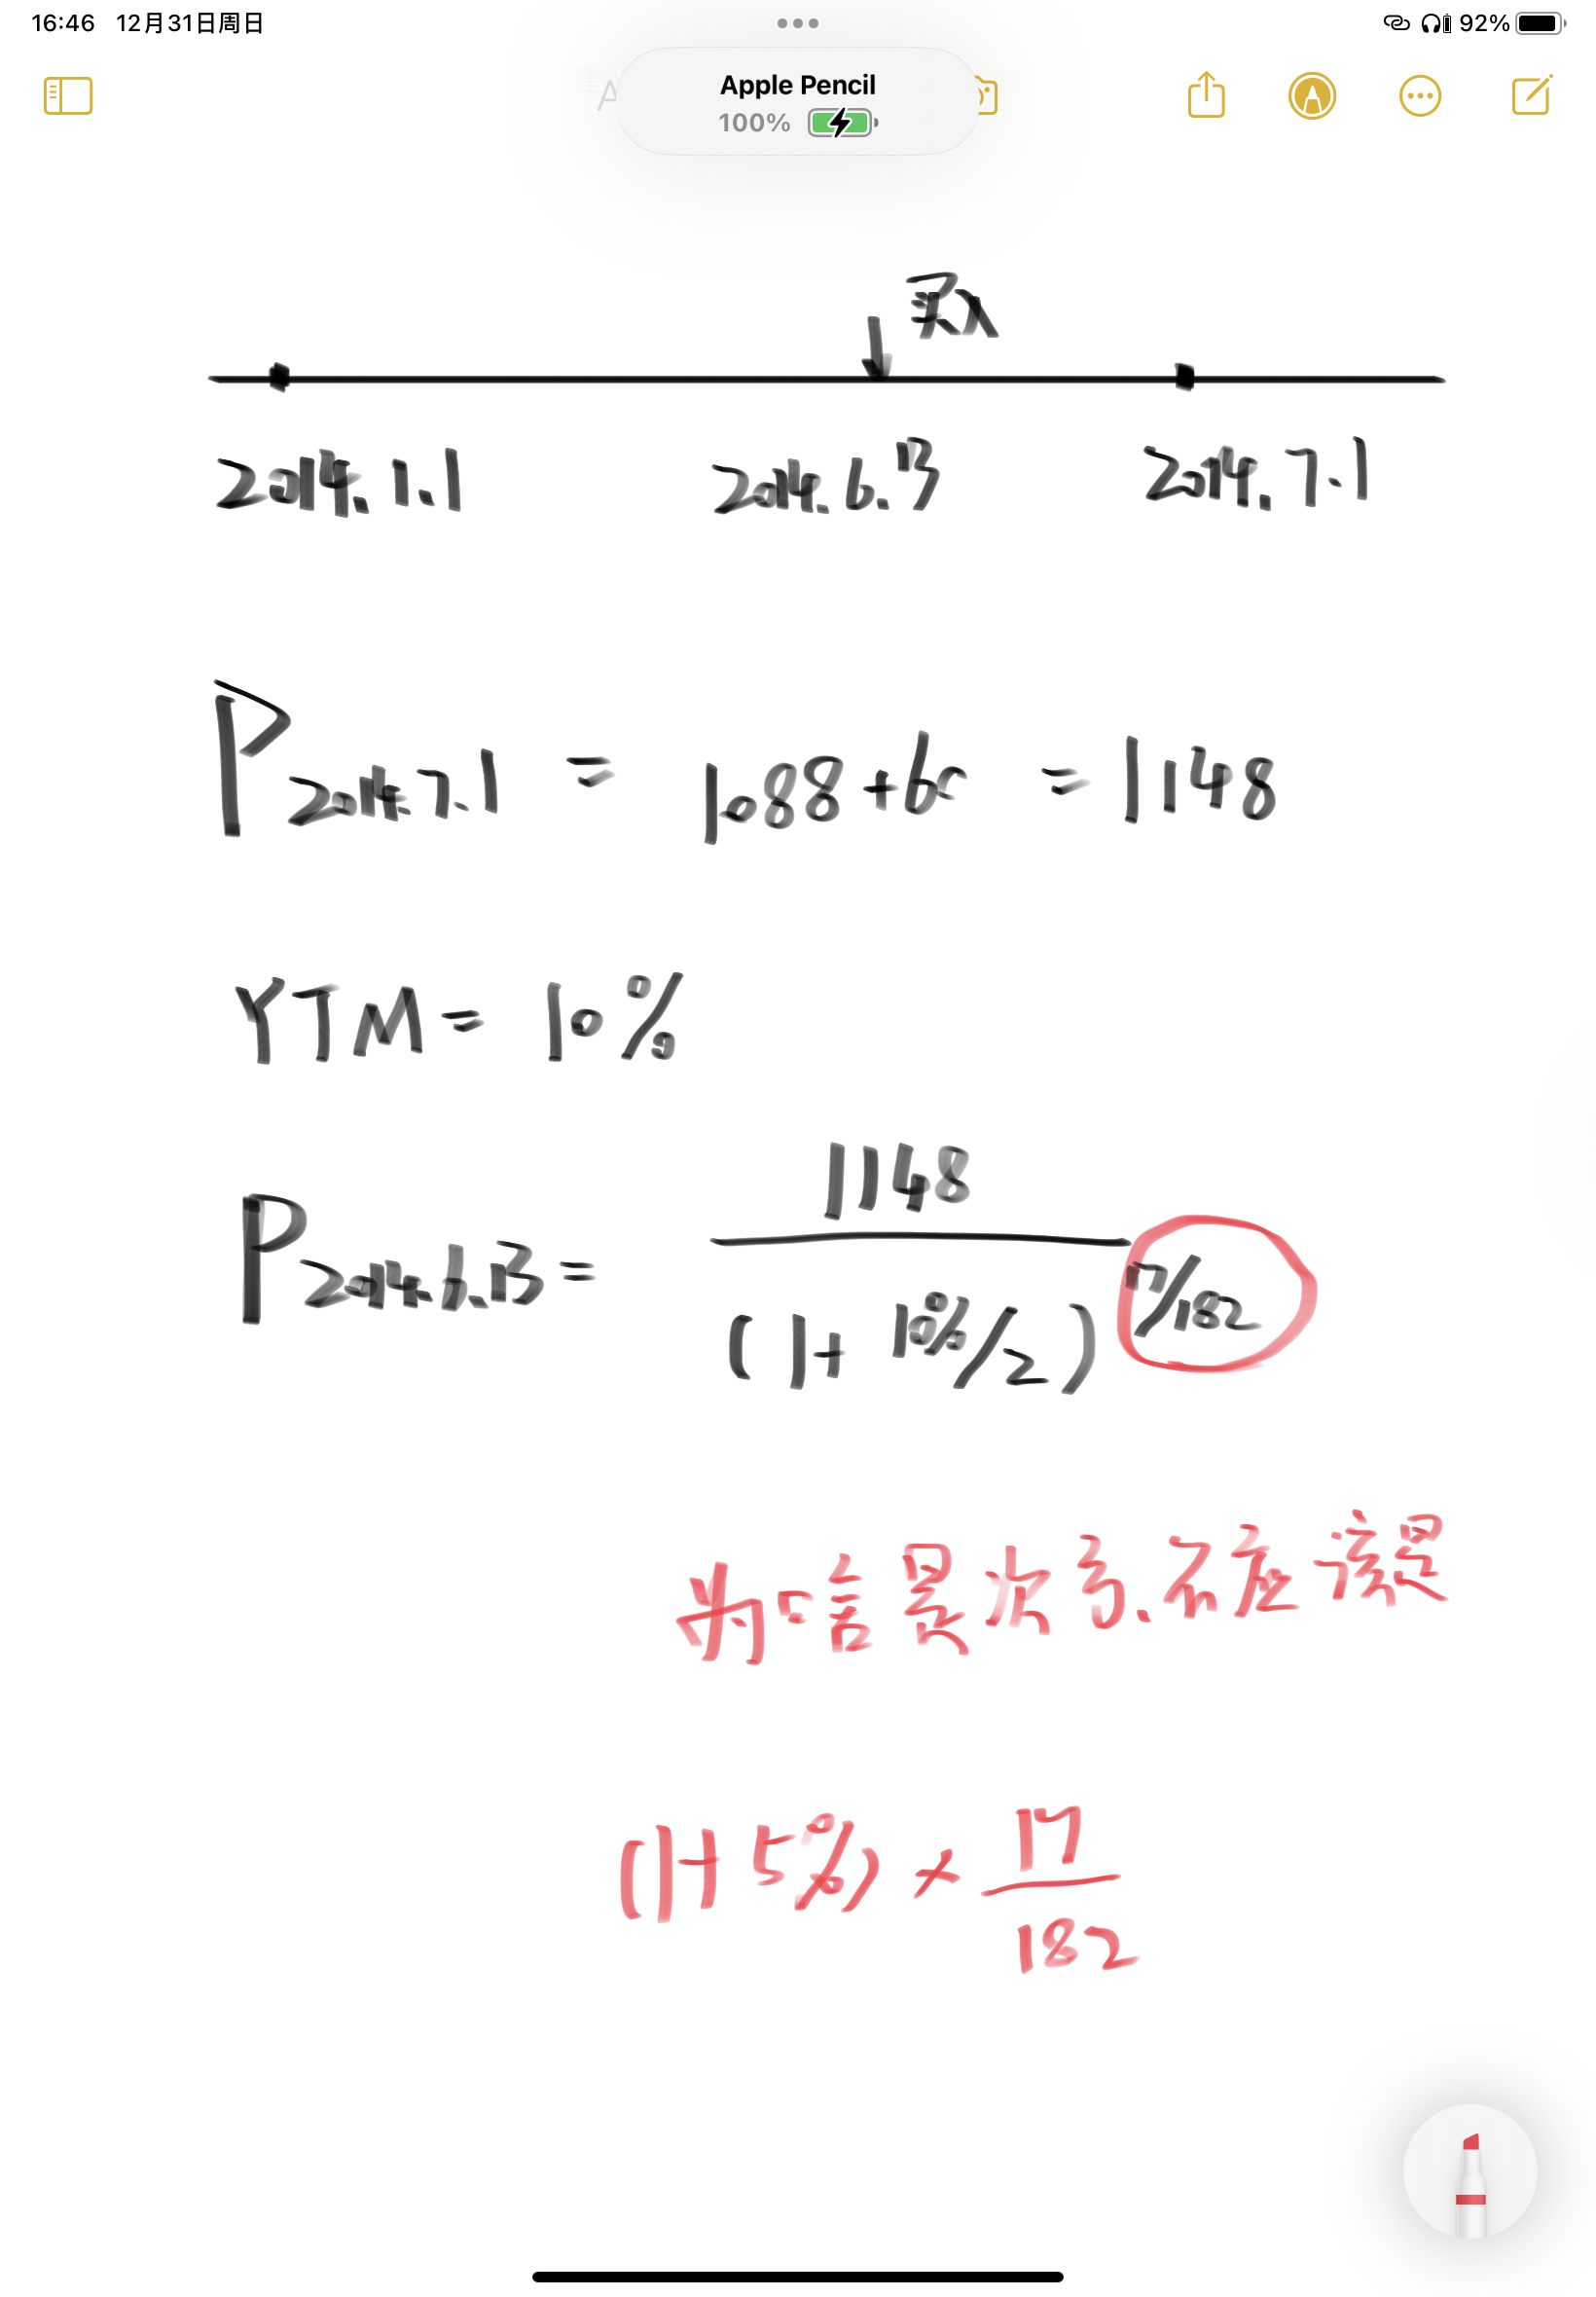 16:46 12月31日周日
92%
Apple Pencil
100%
买入
2014.1.1 2014.6.13 2014.7.1
P2014.7.1 = 1088+60 = 1148
YTM = 10%
P2014.6.13 = 1148
(1+10%/2) 17/182
为啥是次方.不应该是
(1+5%) × 17
182